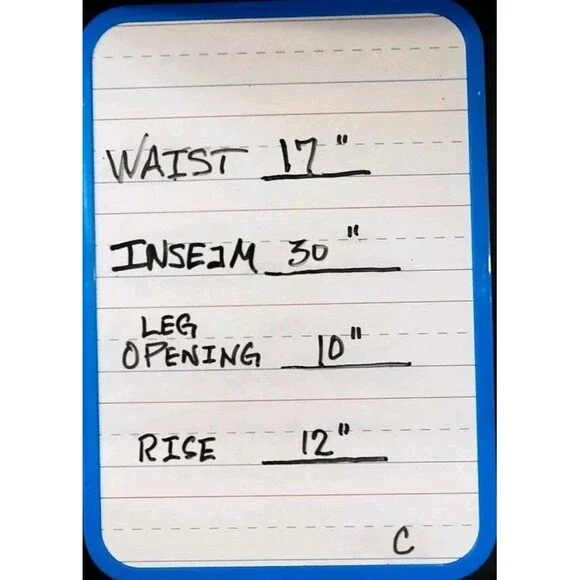 WAIST 17"
INSEJM 30"
LEG
OPENING 10"
RISE 12"
C